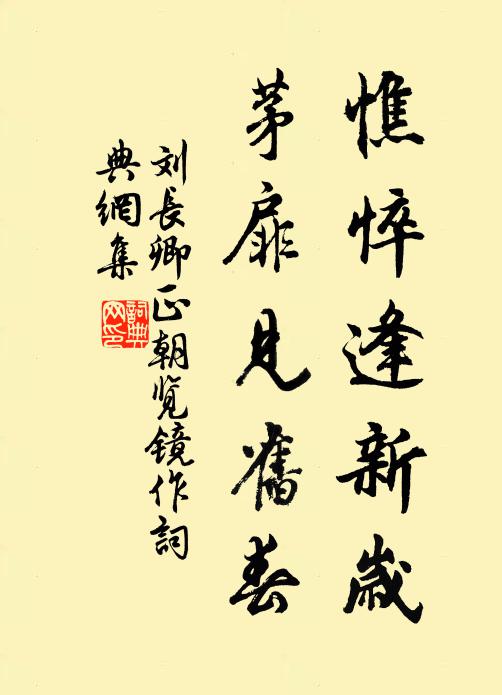 憔悴逢新歲
茅扉見舊春
刘長卿正朝览镜作詞
典網集
詞典
网印